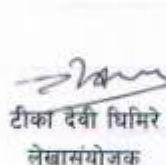 टीका देवी घिमिरे
लेखासंयोजक